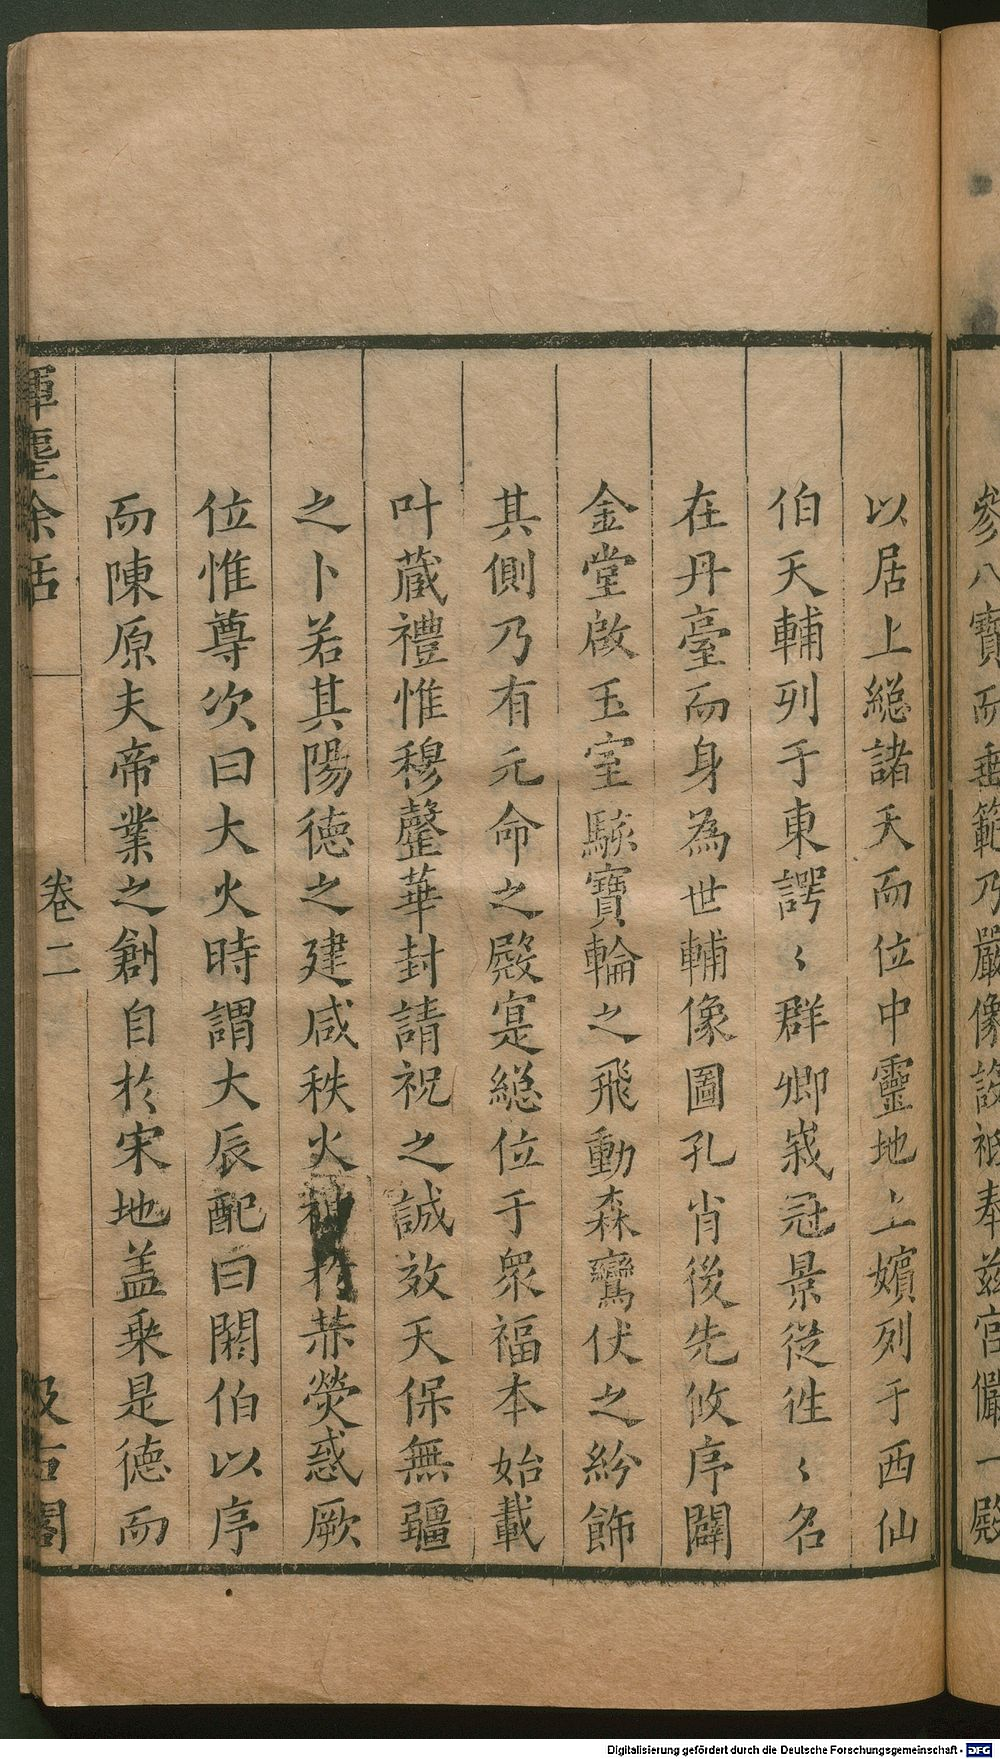 參八寶而垂範乃嚴像設祗奉兹宮儼一殿
以居上緫諸天而位中靈地上嬪列于西仙
伯天輔列于東諤〻群卿峩冠景從徃〻名
在丹臺而身為世輔像圖孔肖後先攸序闢
金堂啟玉室駭寶輪之飛動森鸞伏之紛飾
其側乃有元命之殿寔緫位于衆福本始載
叶蔵禮惟穆罄華封請祝之誠效天保無疆
之卜若其陽德之建咸秩火神於赫熒惑厥
位惟尊次曰大火時謂大辰配曰閼伯以序
而陳原夫帝業之創自於宋地盖乗是德而
揮麈余話
卷二
汲古閣
Digitalisierung gefördert durch die Deutsche Forschungsgemeinschaft - DFG